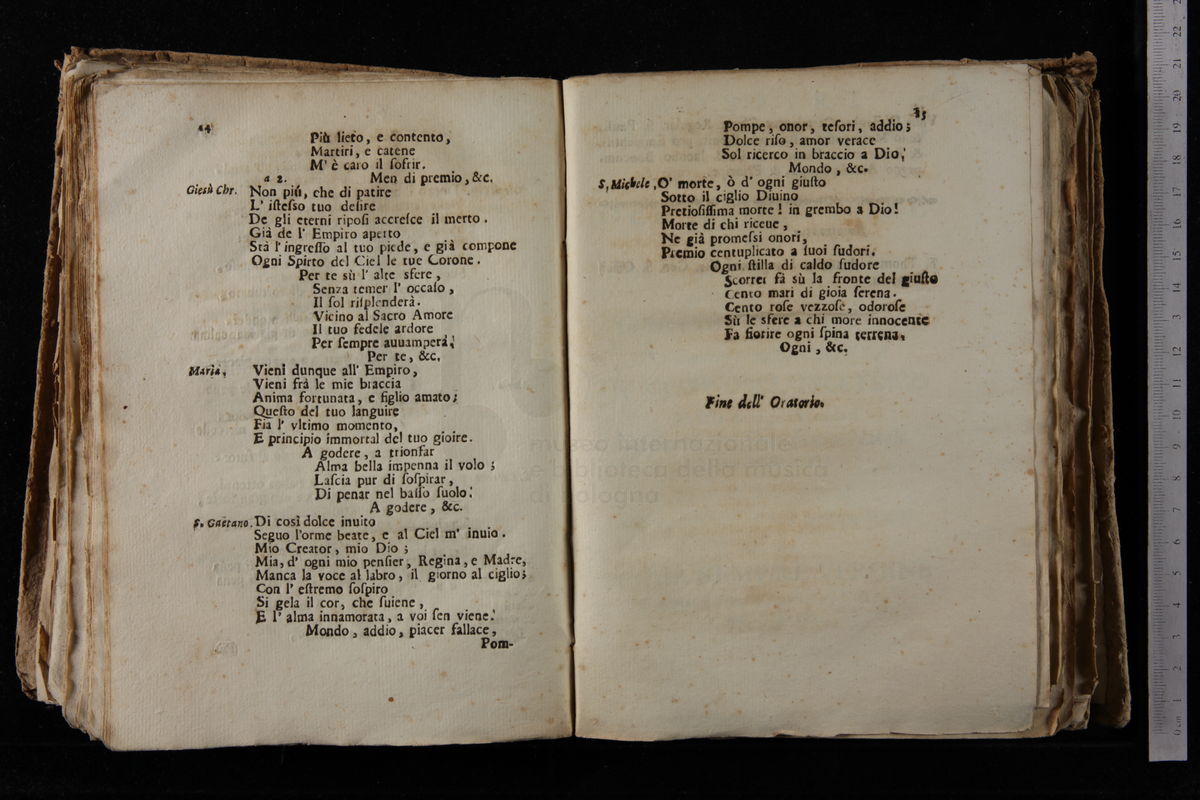 14
Più lieto, e contento,
Martiri, e catene
M' è caro il soffrir.
a 2. Men di premio, &c.
Giesù Chr. Non piú, che di patire
L' istesso tuo desire
De gli eterni riposi accresce il merto.
Già de l' Empiro aperto
Stà l' ingresso al tuo piede, e già compone
Ogni Spirto del Ciel le tue Corone.
Per te sù l' alte sfere,
Senza temer l' occaso,
Il sol risplenderà.
Vicino al Sacro Amore
Il tuo fedele ardore
Per sempre auuamperà.
Per te, &c.
Maria, Vieni dunque all' Empiro,
Vieni frà le mie braccia
Anima fortunata, e figlio amato;
Questo del tuo languire
Fia l' vltimo momento,
E principio immortal del tuo gioire.
A godere, a trionfar
Alma bella impenna il volo;
Lascia pur di sospirar,
Di penar nel basso suolo.
A godere, &c.
S. Gaetano. Di così dolce inuito
Seguo l'orme beate, e al Ciel m' inuio.
Mio Creator, mio Dio;
Mia, d' ogni mio pensier, Regina, e Madre,
Manca la voce al labro, il giorno al ciglio;
Con l' estremo sospiro
Si gela il cor, che suiene,
E l' alma innamorata, a voi sen viene.
Mondo, addio, piacer fallace,
Pom-
15
Pompe, onor, tesori, addio;
Dolce riso, amor verace
Sol ricerco in braccio a Dio,
Mondo, &c.
S. Michele, O' morte, ò d' ogni giusto
Sotto il ciglio Diuino
Pretiosissima morte! in grembo a Dio!
Morte di chi riceue,
Ne già promessi onori,
Premio centuplicato a suoi sudori.
Ogni stilla di caldo sudore
Scorrer fà sù la fronte del giusto
Cento mari di gioia serena.
Cento rose vezzose, odorose
Sù le sfere a chi more innocente
Fa fiorire ogni spina terrena.
Ogni, &c.
Fine dell' Oratorio.
museo internazionale
e biblioteca della musica
di bologna